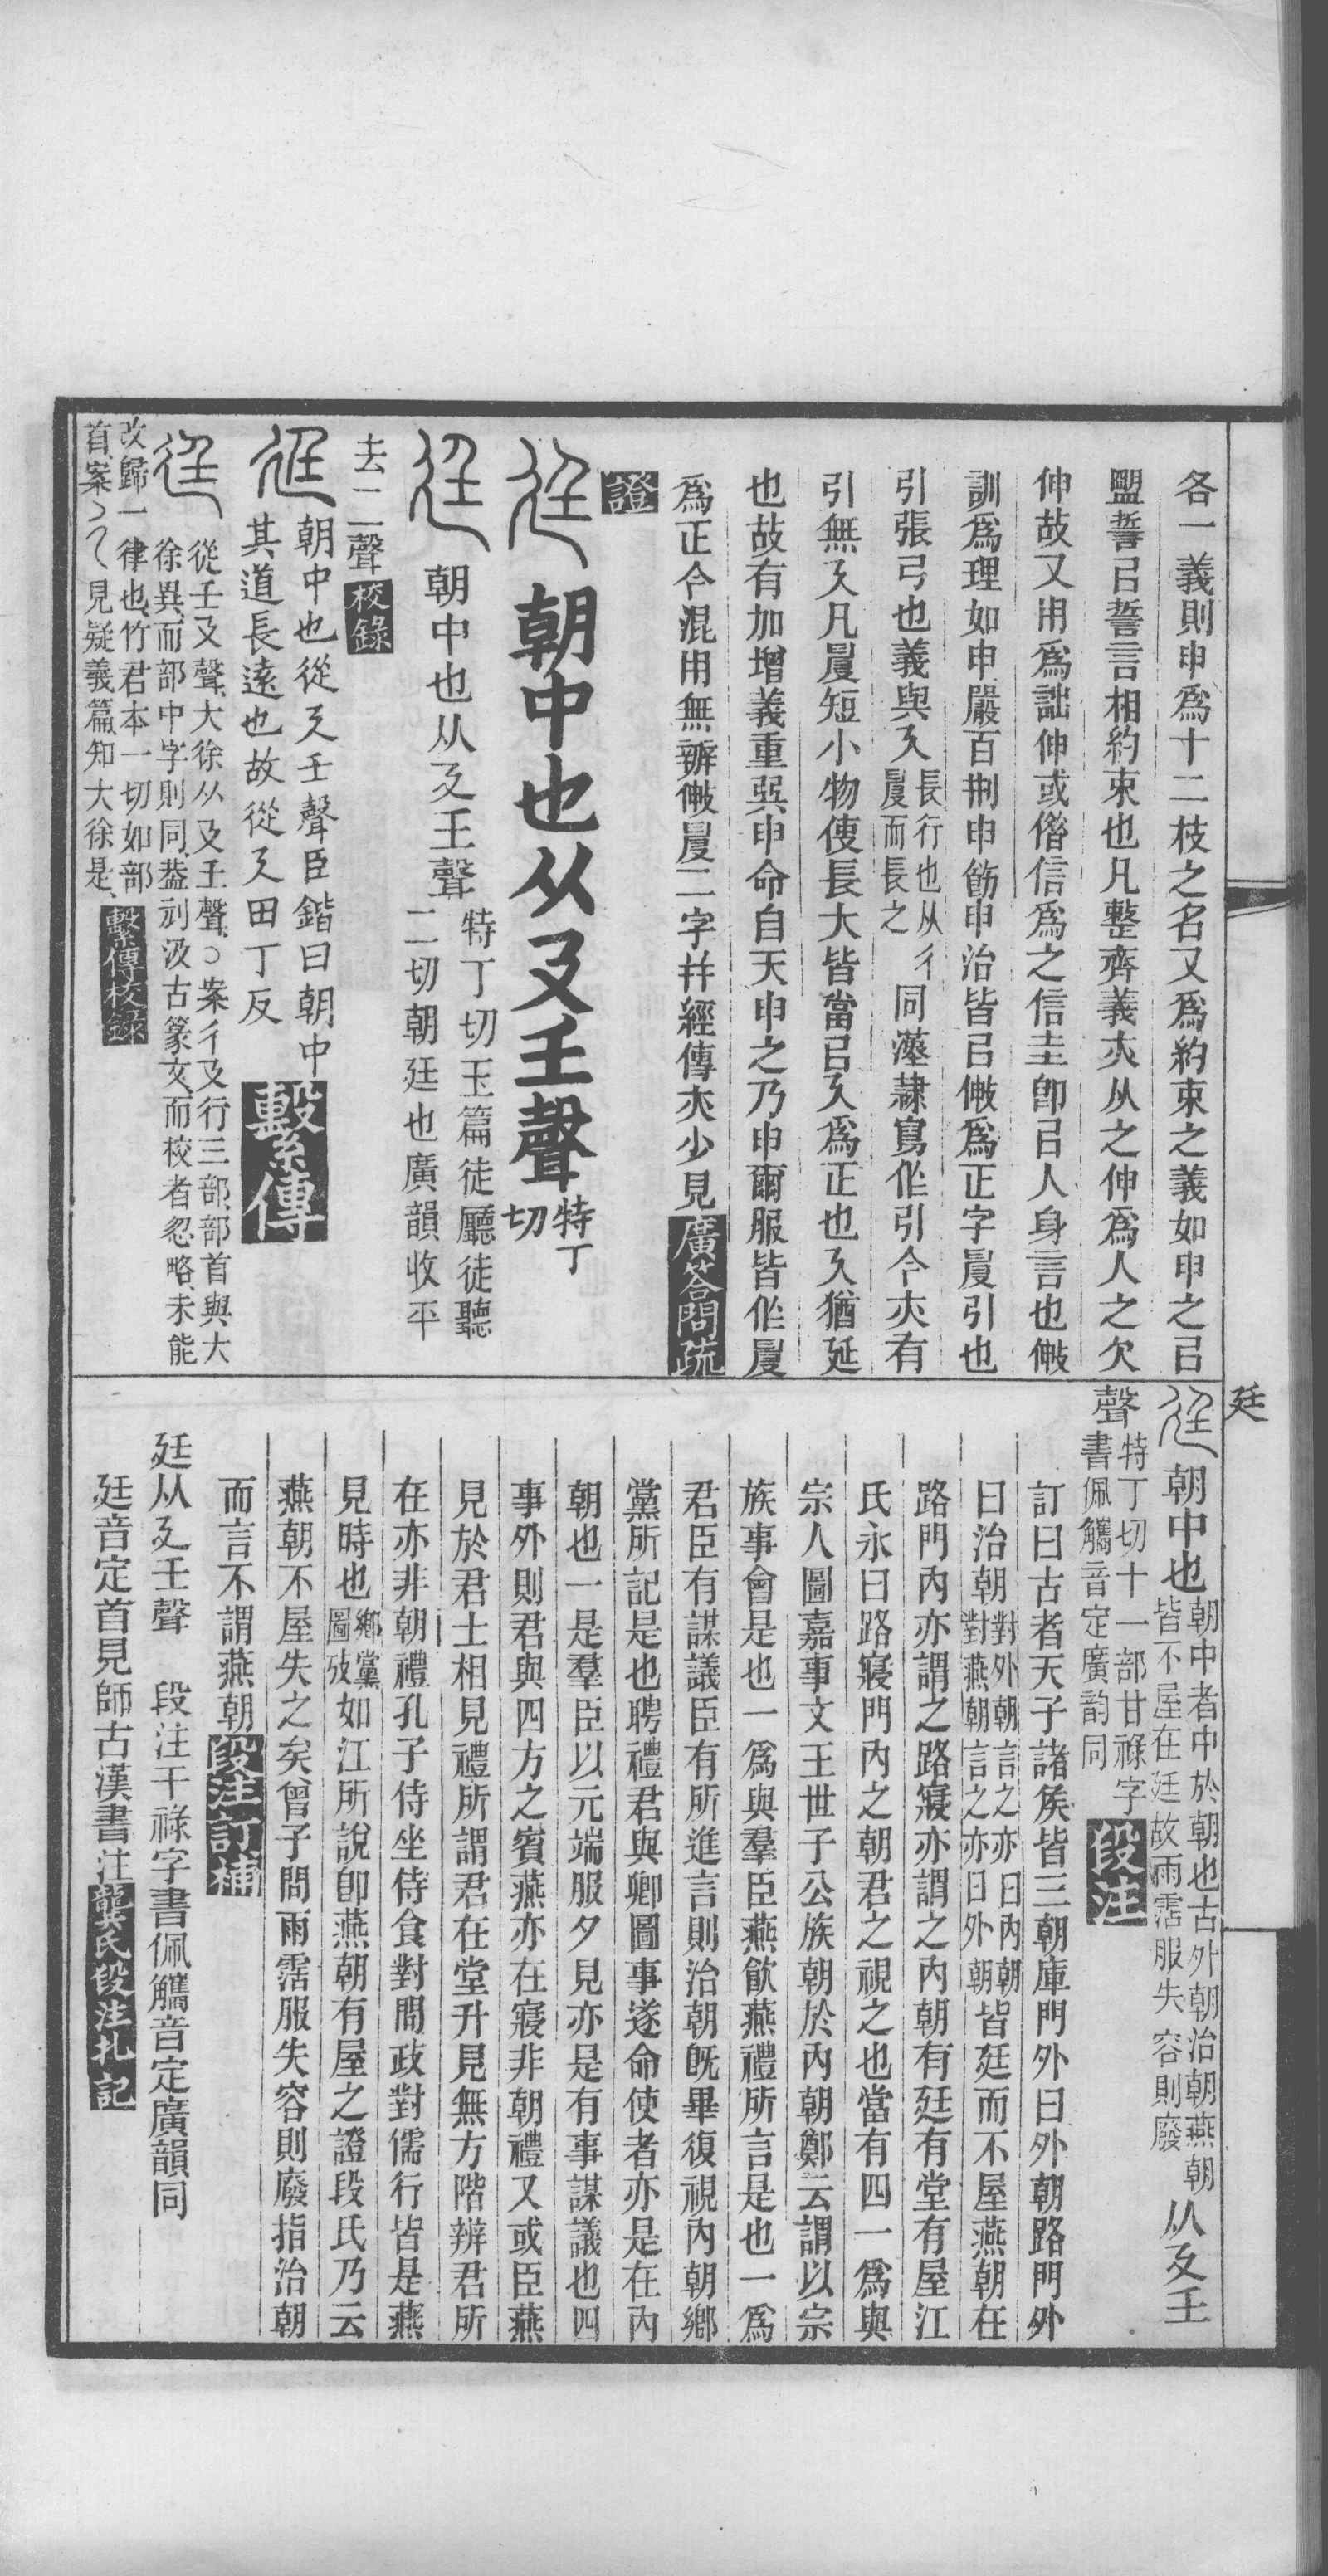 各一義則申爲十二枝之名又爲約束之義如申之㠯
盟誓㠯誓言相約束也凡整齊義亦从之伸爲人之欠
伸故又用爲詘伸或偕信爲之信圭卽㠯人身言也㡀
訓爲理如申嚴百荆申飭申治皆㠯㡀爲正字㬅引也
引張弓也義與廴長行也从彳㬅而長之同漢隷寫作引今亦有
引無廴凡㬅短小物使長大皆當㠯廴爲正也廴猶延
也故有加增義重巽申命自天申之乃申爾服皆作㬅
爲正今混用無辨㡀㬅二字幷經傳亦少見廣答問疏
證
廷朝中也从廴壬聲特丁切
廷朝中也从廴王聲特丁切玉篇徒廳徒聽二切朝廷也廣韻收平
去二聲校錄
廷朝中也從廴壬聲臣鍇曰朝中其道長遠也故從廴田丁反繫傳
廷從壬廴聲大徐从廴王聲○案彳廴行三部部首與大徐異而部中字則同葢剜汲古篆文而校者忽略未能
改歸一律也竹君本一切如部首案乀見疑義篇知大徐是繫傳校錄
廷
廷朝中也朝中者中於朝也古外朝治朝燕朝皆不屋在廷故雨霑服失容則廢从廴王
聲特丁切十一部甘祿字書佩觿音定廣韵同段注
訂曰古者天子諸侯皆三朝庫門外曰外朝路門外
曰治朝對外朝言之亦曰內朝對燕朝言之亦曰外朝皆廷而不屋燕朝在
路門內亦謂之路寢亦謂之內朝有廷有堂有屋江
氏永曰路寢門內之朝君之視之也當有四一爲與
宗人圖嘉事文王世子公族朝於內朝鄭云謂以宗
族事會是也一爲與羣臣燕飮燕禮所言是也一爲
君臣有謀議臣有所進言則治朝旣畢復視內朝鄉
黨所記是也聘禮君與卿圖事遂命使者亦是在內
朝也一是羣臣以元端服夕見亦是有事謀議也四
事外則君與四方之賓燕亦在寢非朝禮又或臣燕
見於君士相見禮所謂君在堂升見無方階辨君所
在亦非朝禮孔子侍坐侍食對問政對儒行皆是燕
見時也鄉黨圖攷如江所說卽燕朝有屋之證段氏乃云
燕朝不屋失之矣曾子問雨霑服失容則廢指治朝
而言不謂燕朝段注訂補
廷从廴壬聲　段注干祿字書佩觿音定廣韻同
廷音定首見師古漢書注龔氏段注札記